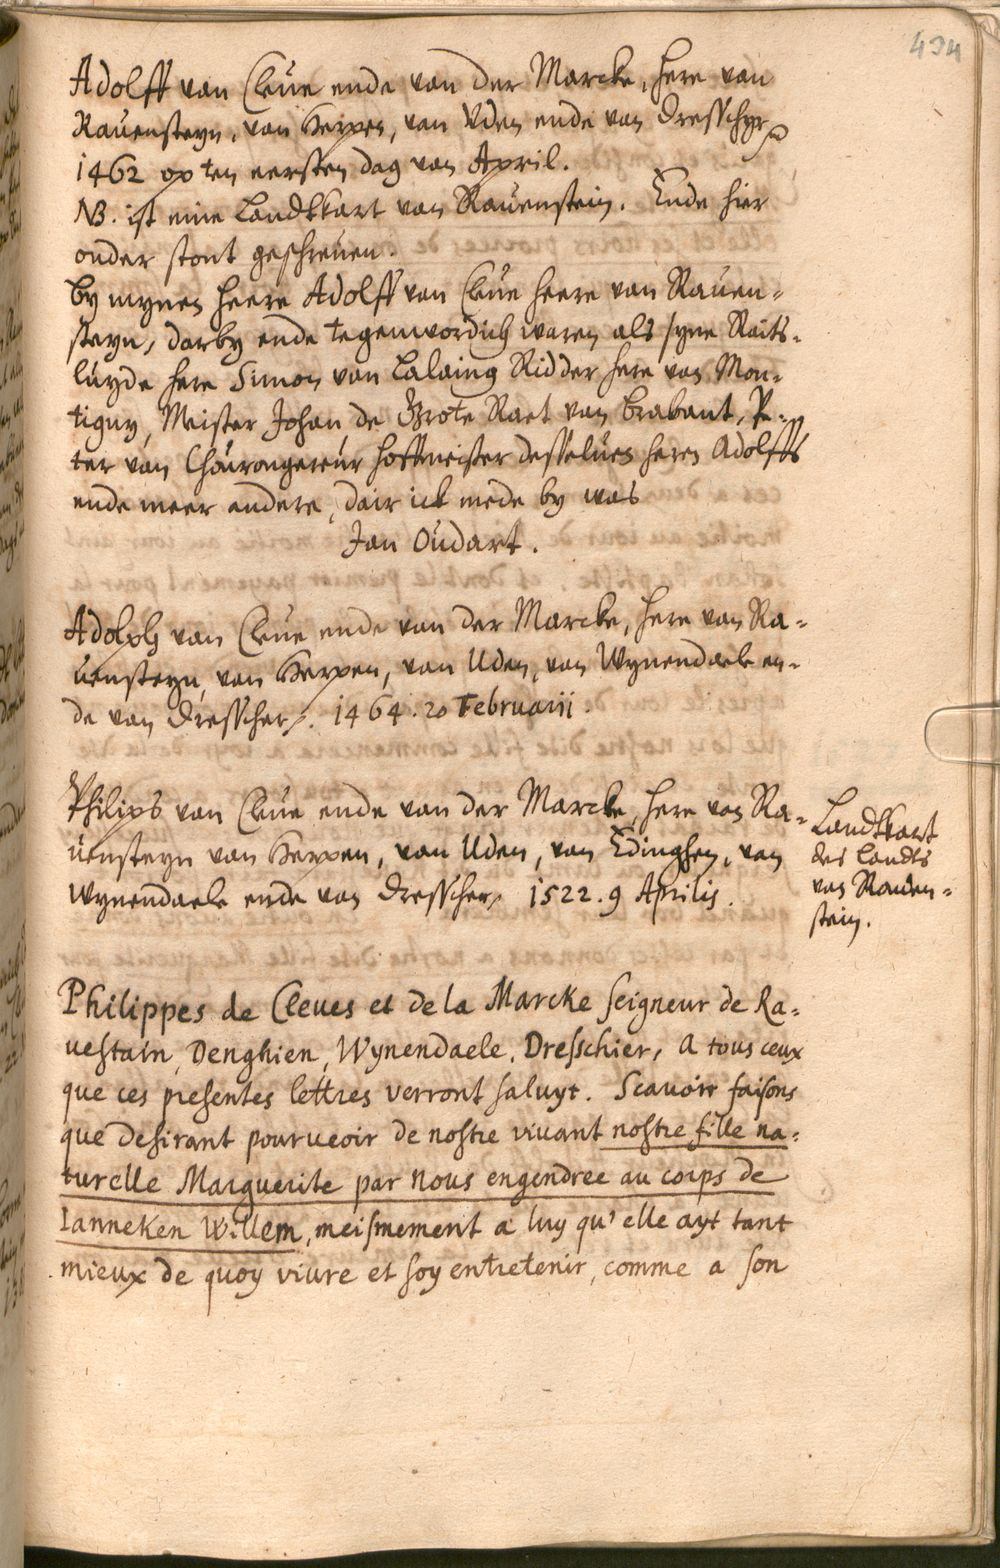 434
Adolff van Cleue ende van der Marcke, here van
Rauensteyn, van Herpen, van Vden ende van Dresschyr
1462 op ten eersten dag van April.
NB. ist eine Landtkart van Rauenstein. Ende hier
onder stont geschreuen.
by mynen heere Adolff van Cleue heere van Rauen-
steyn, darby ende tegenwordich waren als syne Raits-
luyde here Simon van Lalaing Ridder here van Mon-
tigny, Meister Johan de Grote Raet van Brabant, P-
ter van hoffmeister desselues heren Adolffs
ende meer andere, dair ick mede by was
Jan Oudart.
Adolph van Cleue ende van der Marcke, here van Ra-
uensteyn, van Herpen, van Uden, van Wynendaele en-
de van Dresscher. 1464. 20 Februarii.
Philips van Cleue ende van der Marcke, here van Ra-
uensteyn van Herpen, van Uden, van Edinghen, van
Wynendaele ende van Dresscher, 1522. 9 Aprilis.
Landtkart
des Landts
van Rauen-
stein.
Philippes de Cleues et de la Marcke seigneur de Ra-
uestain, Denghien, Wynendaele, Dresschier, A tous ceux
que ces presentes lettres verront saluyt. Scauoir faisons
que desirant pourueoir de nostre viuant nostre fille na-
turelle Marguerite par nous engendree au corps de
Ianneken Willem, meismement a luy qu'elle ayt tant
mieux de quoy viure et soy entretenir, comme a son